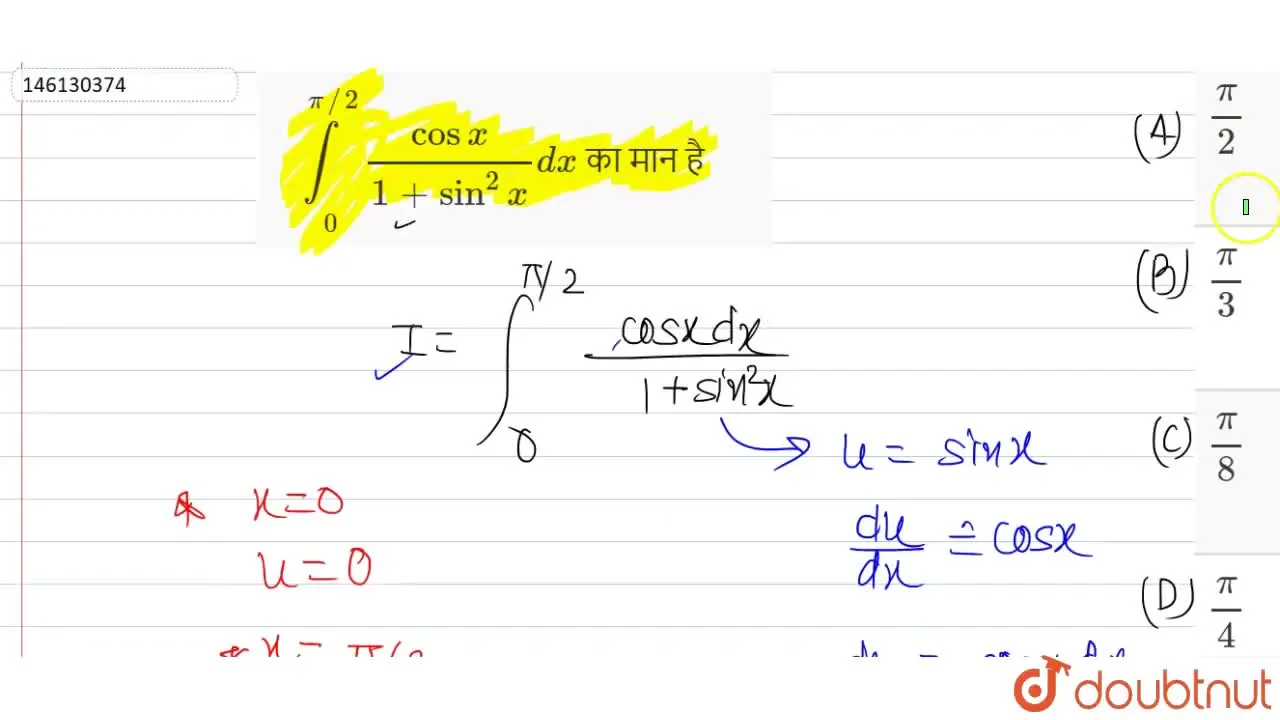 146130374
∫₀^{π/2} cos x / (1 + sin² x) dx का मान है
(A) π/2
(B) π/3
(C) π/8
(D) π/4
I = ∫₀^{π/2} cosx dx / (1 + sin²x)
u = sinx
du/dx = cosx
* x=0
u=0
* x = π/2
doubtnut